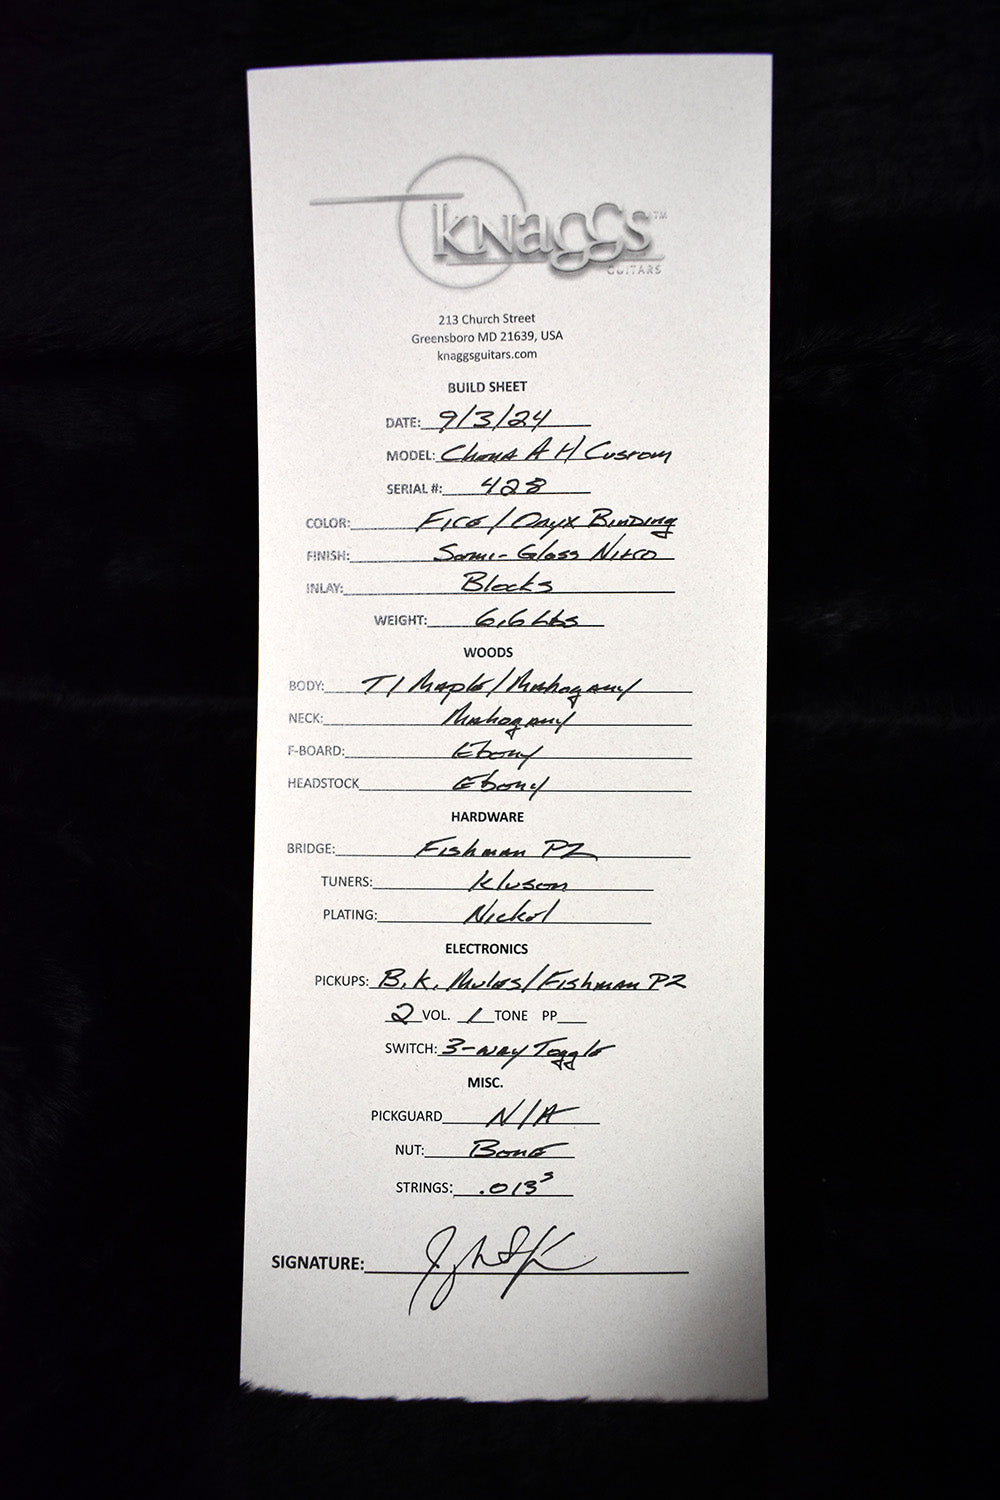 Knaggs™
GUITARS
213 Church Street
Greensboro MD 21639, USA
knaggsguitars.com
BUILD SHEET
DATE: 9/3/24
MODEL: A H/ Custom
SERIAL #: 428
COLOR: Fire / Onyx Binding
FINISH: Semi-Gloss Nitro
INLAY: Blocks
WEIGHT: 6.6 Lbs
WOODS
BODY: T1 Maple / Mahogany
NECK: Mahogany
F-BOARD: Ebony
HEADSTOCK Ebony
HARDWARE
BRIDGE: Fishman PZ
TUNERS: Kluson
PLATING: Nickel
ELECTRONICS
PICKUPS: B.K. Mules / Fishman PZ
2 VOL. 1 TONE PP
SWITCH: 3-way Toggle
MISC.
PICKGUARD N/A
NUT: Bone
STRINGS: .013s
SIGNATURE: